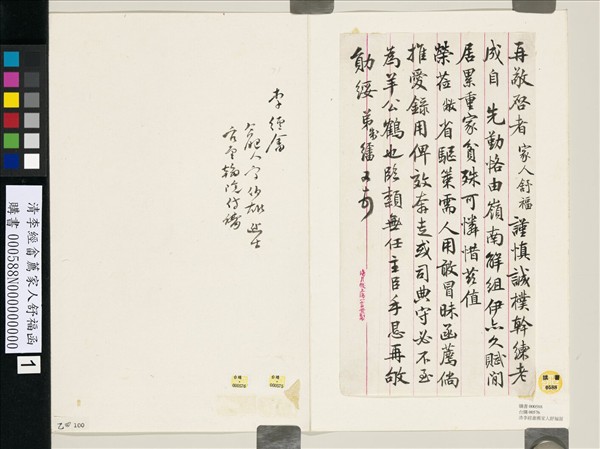 再敬啓者家人舒福謹慎誠樸幹練老
成自　先勤恪由嶺南解組伊亦久賦閒
居累重家貧殊可憐惜茲值
榮蒞　敝省驅策需人用敢冒昧函薦倘
推愛錄用俾效奔走或司典守必不至
為羊公鶴也臨頴無任主臣手恳再敂
勛綏　弟
又可
李經畬
合肥人
清李經畬薦家人舒福函
購書 000588N000000000
1
乙 100